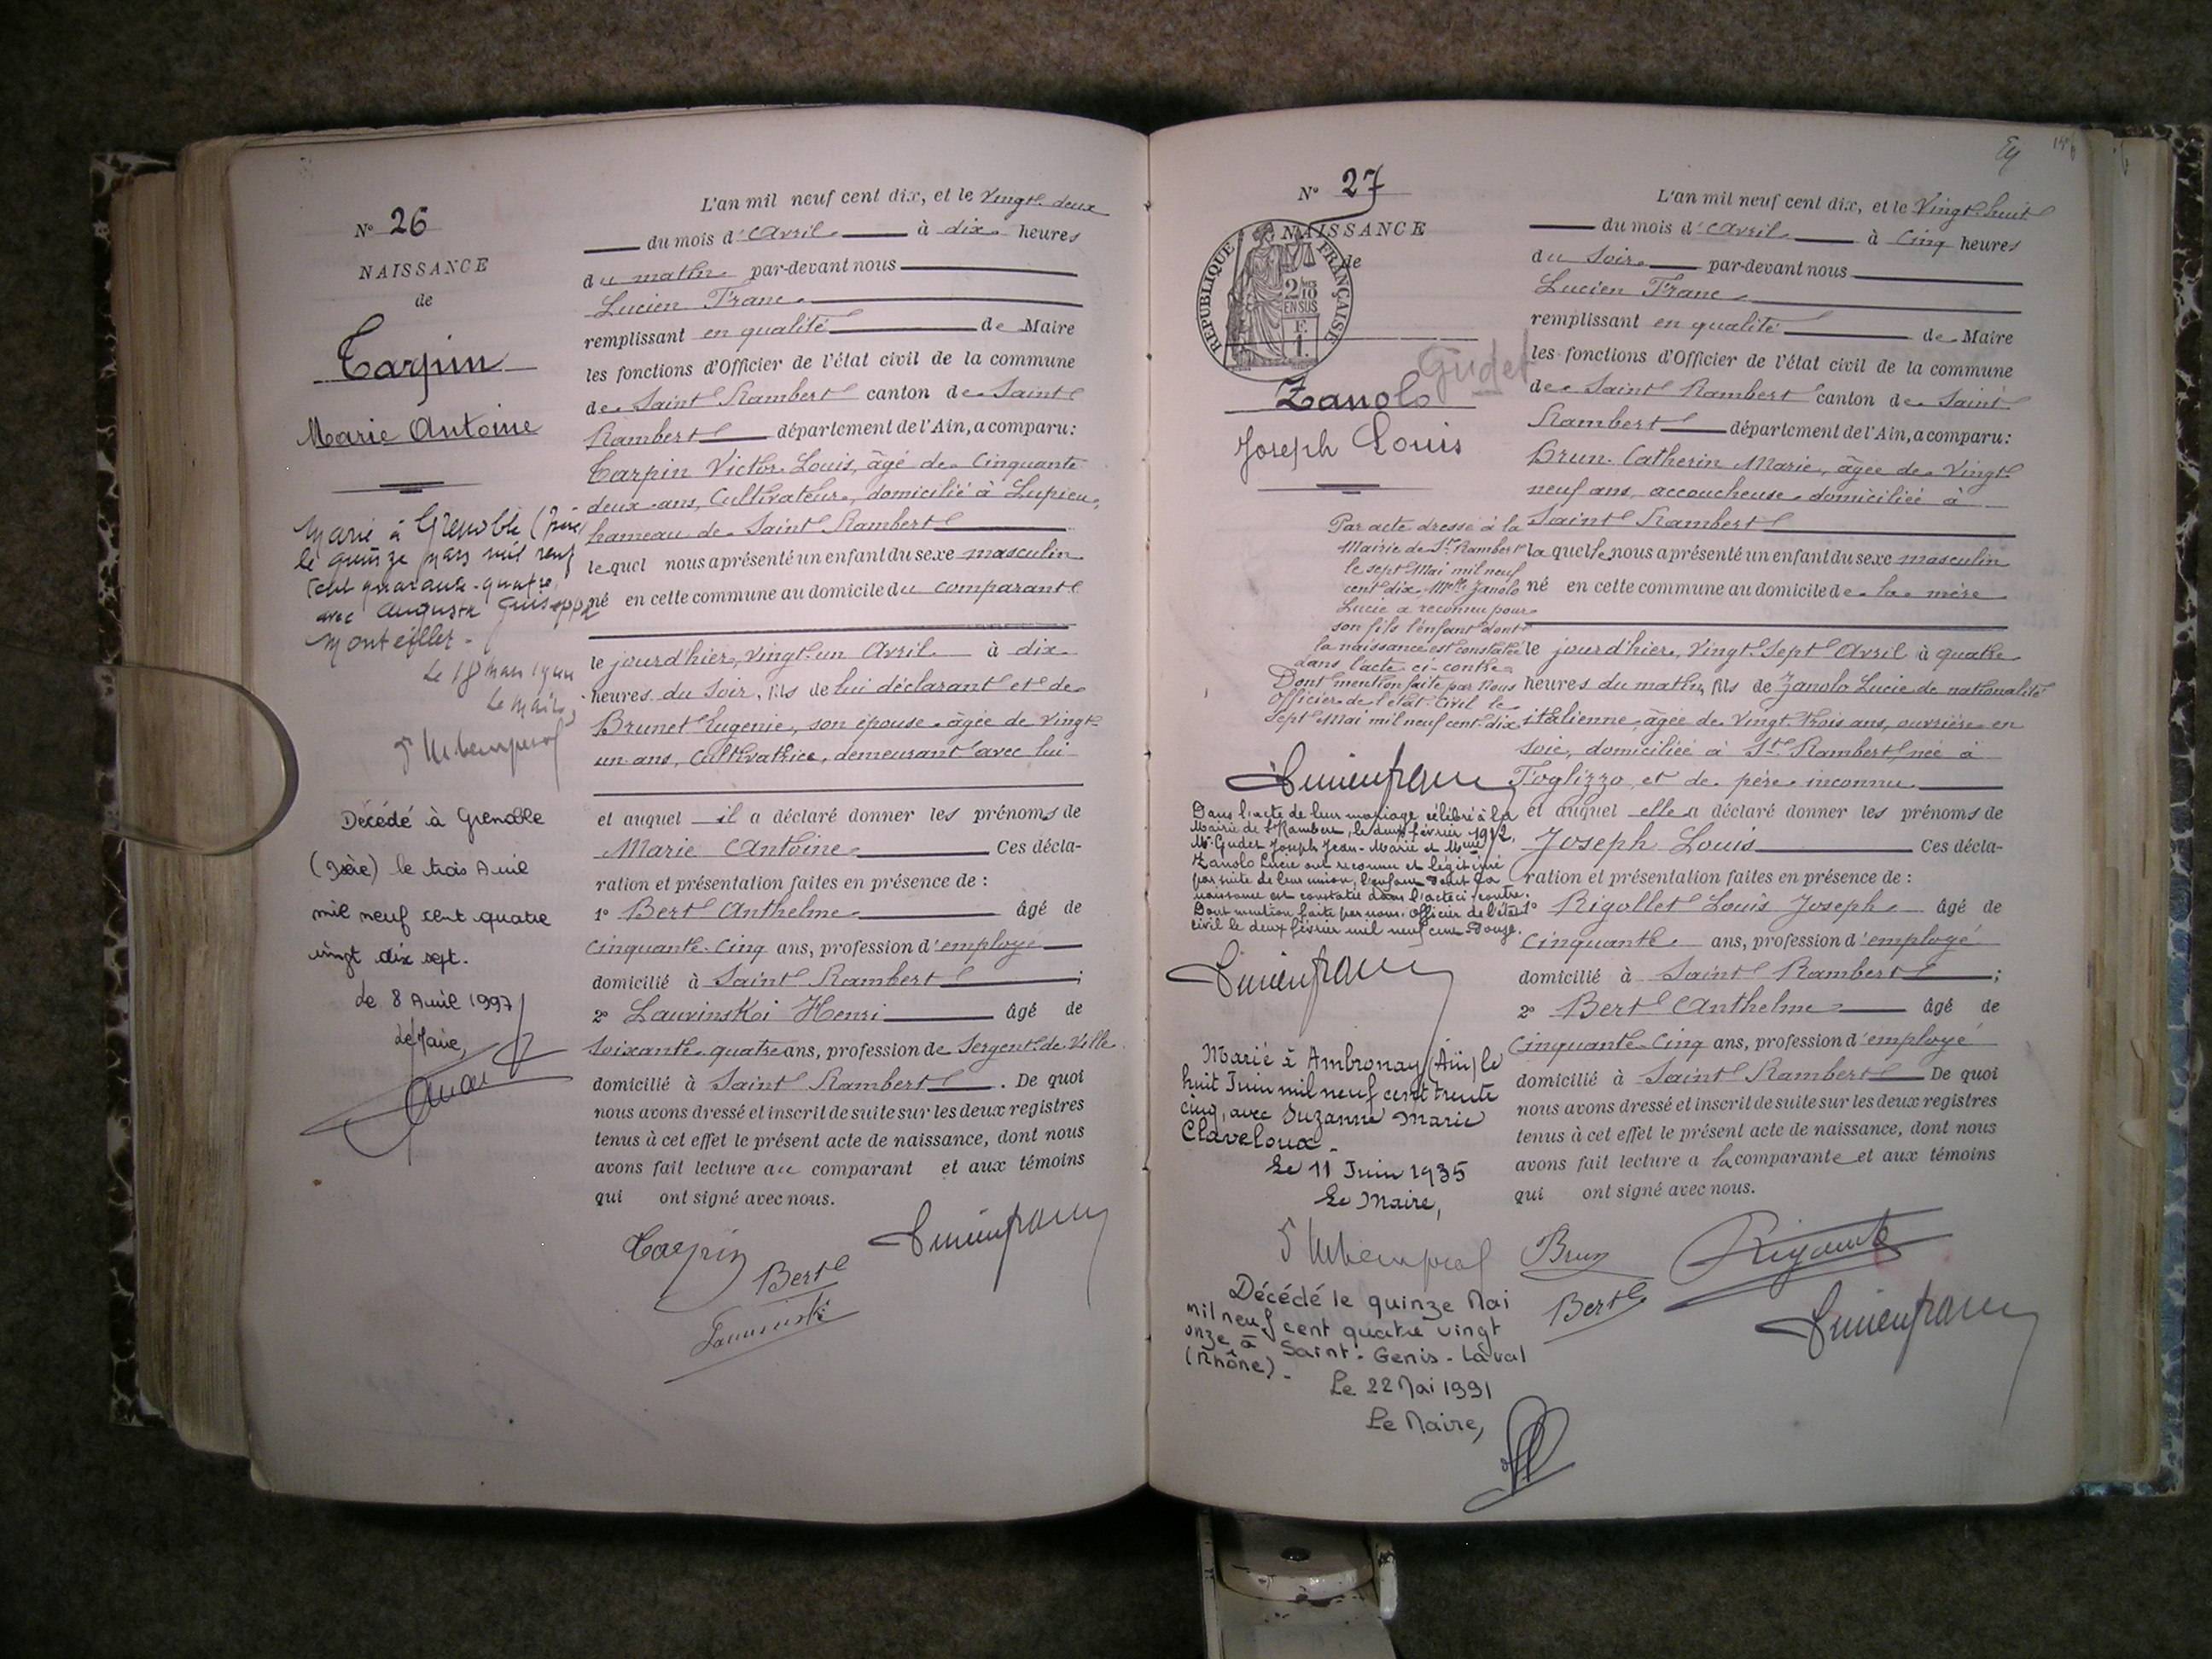 N° 26
NAISSANCE
de
Tarpin
Marie Antoine
Marié à Grenoble (Isère)
le quinze mars mil neuf
cent quarante-quatre
avec Augusta
Monteiller -
Le 18 mars 1944
Le Maire,
Décédé à Grenoble
(Isère) le trois Avril
mil neuf cent quatre
vingt dix sept.
Le 8 Avril 1997
Le Maire,
L'an mil neuf cent dix, et le vingt-deux
du mois d'Avril à dix heures
du matin par-devant nous
Lucien Franc
remplissant en qualité de Maire
les fonctions d'Officier de l'état civil de la commune
de Saint Rambert canton de Saint
Rambert département de l'Ain, a comparu:
Tarpin Victor Louis, âgé de Cinquante
deux ans, Cultivateur, domicilié à Lupieu,
hameau de Saint Rambert
lequel nous a présenté un enfant du sexe masculin
né en cette commune au domicile du comparant
le jour d'hier, vingt-un Avril à dix
heures du Soir, fils de lui déclarant et de
Brunet Eugenie, son épouse âgée de vingt-
un ans, Cultivatrice, demeurant avec lui
et auquel il a déclaré donner les prénoms de
Marie Antoine Ces décla-
ration et présentation faites en présence de :
1° Bert Anthelme âgé de
Cinquante-Cinq ans, profession d'employé
domicilié à Saint Rambert ;
2° Lauvinskoi Henri âgé de
Soixante quatre ans, profession de Sergent de Ville
domicilié à Saint Rambert . De quoi
nous avons dressé et inscrit de suite sur les deux registres
tenus à cet effet le présent acte de naissance, dont nous
avons fait lecture au comparant et aux témoins
qui ont signé avec nous.
Tarpin
Bert
Lucien franc
N° 27
NAISSANCE
de
RÉPUBLIQUE FRANÇAISE
2/10
EN SUS
F.
1.
Gudet
Zanolo
Joseph Louis
Par acte dressé à la
Mairie de St Rambert
le sept Mai mil neuf
cent dix, Melle Zanolo
Lucie a reconnu pour
son fils l'enfant dont
la naissance est constatée
dans l'acte ci-contre
Dont mention faite par Nous
Officier de l'état-Civil le
sept Mai mil neuf cent-dix
Lucien franc
Dans l'acte de leur mariage célébré à la
Mairie de St Rambert, le deux février 1912,
Mr Gudet Joseph Jean-Marie et Mme
Zanolo Lucie ont reconnu et légitimé
par suite de leur union, l'enfant dont la
naissance est constatée dans l'acte ci-contre.
Dont mention faite par nous, Officier de l'état
civil le deux février mil neuf cent-Douze.
Lucien franc
Marié à Ambronay (Ain) le
huit Juin mil neuf cent trente
cinq, avec Suzanne Marie
Claveloux -
Le 11 Juin 1935
Le Maire,
Décédé le quinze Mai
mil neuf cent quatre vingt
onze à Saint-Genis-Laval
(Rhône)-
Le 22 Mai 1991
Le Maire,
L'an mil neuf cent dix, et le Vingt-huit
du mois d'Avril à Cinq heures
du Soir par-devant nous
Lucien Franc
remplissant en qualité de Maire
les fonctions d'Officier de l'état civil de la commune
de Saint Rambert canton de Saint
Rambert département de l'Ain, a comparu:
Brun Catherin Marie, âgée de Vingt
neuf ans, accoucheuse domiciliée à
Saint Rambert
laquelle nous a présenté un enfant du sexe masculin
né en cette commune au domicile de la mère
le jour d'hier, Vingt-Sept Avril à quatre
heures du matin, fils de Zanolo Lucie de nationalité
italienne, âgée de Vingt-trois ans, ouvrière en
soie, domiciliée à St Rambert, née à
Foglizzo et de père inconnu
et auquel elle a déclaré donner les prénoms de
Joseph Louis Ces décla-
ration et présentation faites en présence de :
1° Rigollet Louis Joseph âgé de
Cinquante ans, profession d'employé
domicilié à Saint Rambert ;
2° Bert Anthelme âgé de
Cinquante-Cinq ans, profession d'employé
domicilié à Saint Rambert De quoi
nous avons dressé et inscrit de suite sur les deux registres
tenus à cet effet le présent acte de naissance, dont nous
avons fait lecture a la comparante et aux témoins
qui ont signé avec nous.
Brun
Bert
Lucien franc